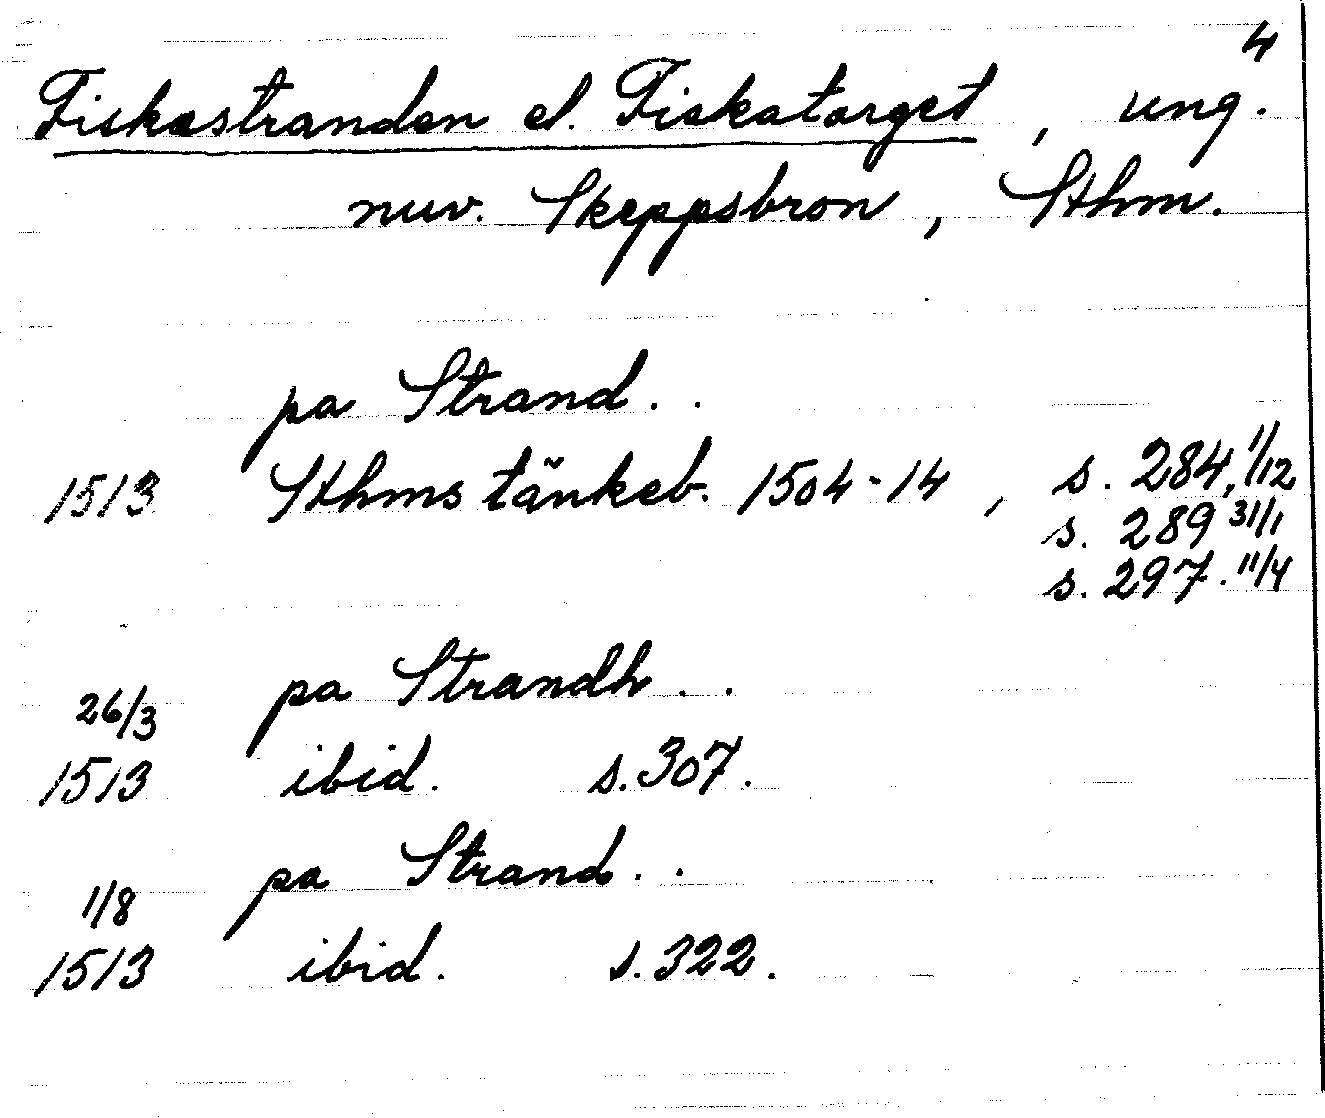 4
Fiskastranden el. Fiskatorget, ung.
nuv. Skeppsbron, Sthm.
pa Strand. .
1513 Sthms tänkeb. 1504-14, s. 284, 1/12
s. 289 31/1
s. 297. 11/4
26/3 pa Strandh . .
1513 ibid. s. 307.
1/8 pa Strand. .
1513 ibid. s. 322.